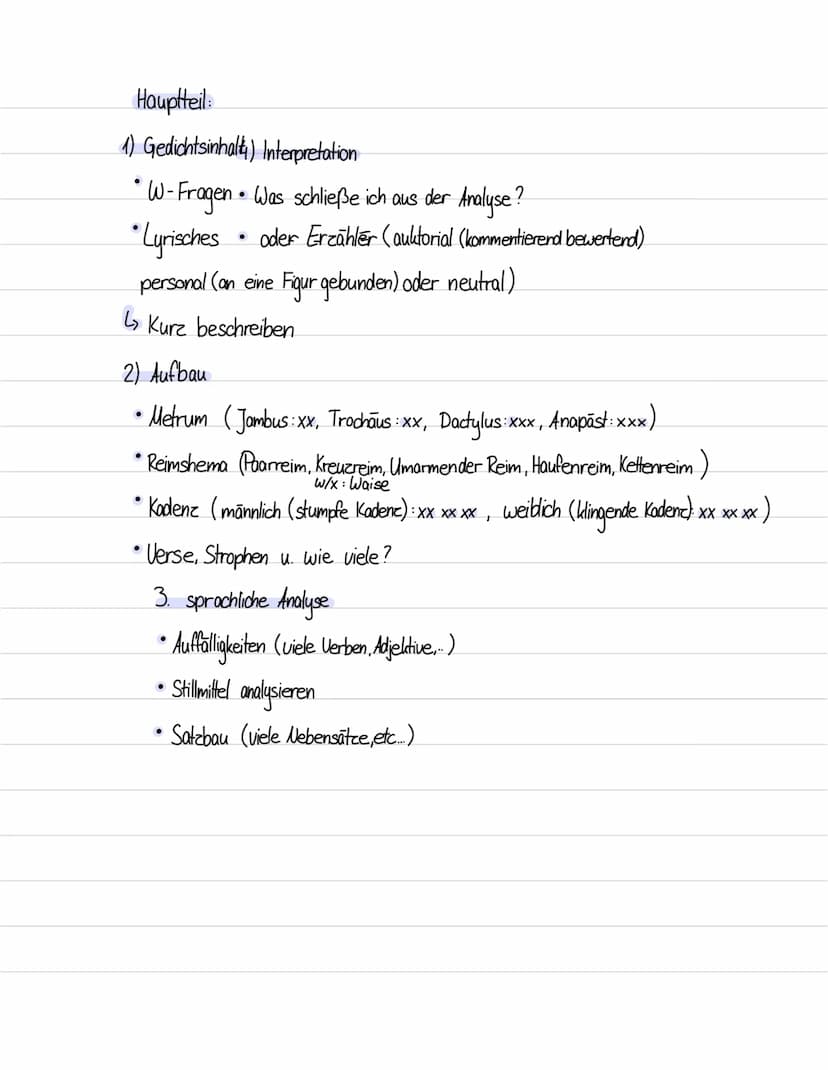 Hauptteil:
1) Gedichtsinhalt 4) Interpretation
• W-Fragen • Was schließe ich aus der Analyse?
• Lyrisches • oder Erzähler (auktorial (kommentierend bewertend)
personal (an eine Figur gebunden) oder neutral)
↳ Kurz beschreiben
2) Aufbau
• Metrum (Jambus: xx, Trochäus: xx, Dactylus: xxx, Anapäst: xxx)
• Reimshema (Paarreim, Kreuzreim, Umarmender Reim, Haufenreim, Kettenreim)
w/x: Waise
• Kadenz (männlich (stumpfe Kadenz): xx xx xx, weiblich (klingende Kadenz): xx xx xx)
• Verse, Strophen u. wie viele?
3. sprachliche Analyse
• Auffälligkeiten (viele Verben, Adjektive,..)
• Stillmittel analysieren
• Satzbau (viele Nebensätze, etc...)